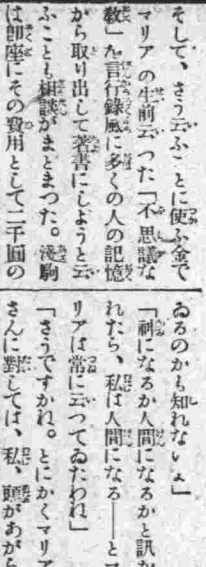 そして、さう云ふことに使ふ金で
マリアの生前云つた「不思議な
教」を言行錄風に多くの人の記憶
から取り出して著書にしようと云
ふことも相談がまとまつた。淺駒
は卽座にその費用として二千圓の
ゐるのかも知れないよ」
「神になるか人間になるかと訊か
れたら、私は人間になる――とマ
リアは常に云つてゐたわね」
「さうですかね。とにかくマリア
さんに對しては、私、頭があがら